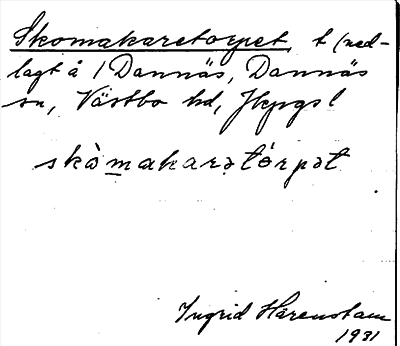 Skomakaretorpet, t (ned-
lagt å 1 Dannäs, Dannäs
sn, Västbo hd, Jkpgs l
skòm̲akarə tórpət
Ingrid Härenstam
1931